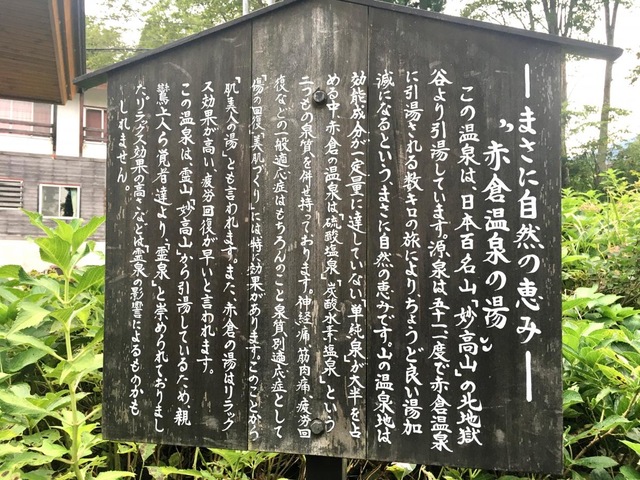 ―まさに自然の恵み―
〝赤倉温泉の湯〟
この温泉は、日本百名山「妙高山」の北地獄
谷より引湯しています。源泉は五十二度で赤倉温泉
に引湯される数キロの旅により、ちょうど良い湯加
減になるという、まさに自然の恵みです。山の温泉地は
効能成分が一定量に達していない「単純泉」が大半を占
める中、赤倉の温泉は「硫酸塩泉」「炭酸水素塩泉」という
二つもの泉質を併せ持っております。神経痛、筋肉痛、疲労回
復などの一般適応症はもちろんのこと泉質別適応症として
「傷の回復、美肌づくり」には特に効果があります。このことから
「肌美人の湯」とも言われます。また、赤倉の湯はリラック
ス効果が高い、疲労回復が早いと言われます。
この温泉は、霊山「妙高山」から引湯しているため、親
鸞上人ら覚者達より、「霊泉」と崇められておりまし
た。リラックス効果の高さなどは「霊泉の影響によるものかも
しれません。